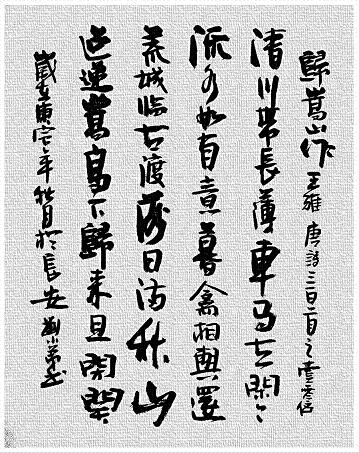 歸嵩山作 王維 唐詩三百首之
清川帶長薄車馬去閑々
流水如有意暮禽相與還
荒城臨古渡落日滿秋山
迢遞嵩高下歸來且閉關
歲在庚寅年秋月於長安 劉